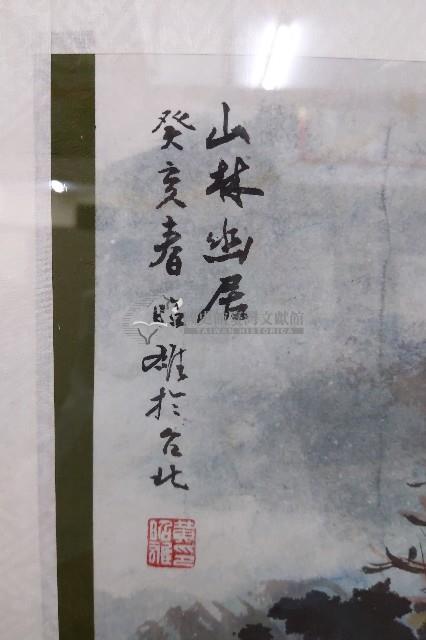 山林幽居
癸亥春昭雄於台北
黃昭雄印
國史館臺灣文獻館
TAIWAN HISTORICA